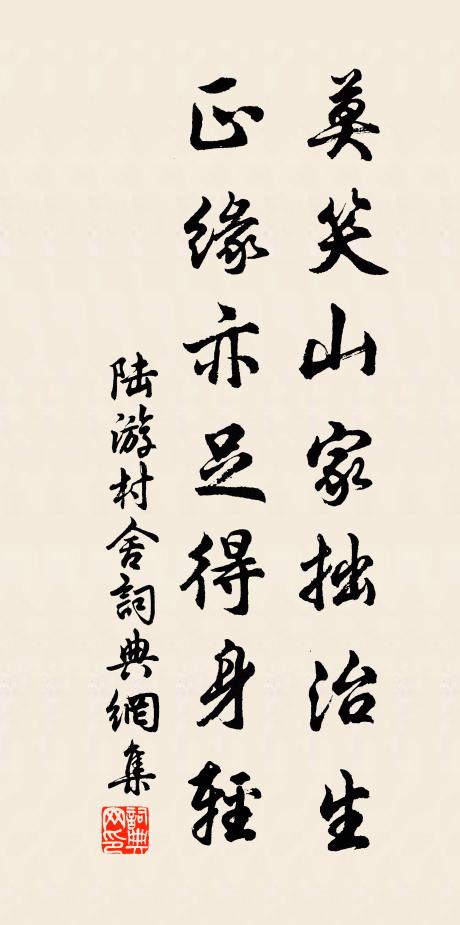 莫笑山家拙治生
正緣亦足得身輕
陆游村舍詞典網集
詞典网印